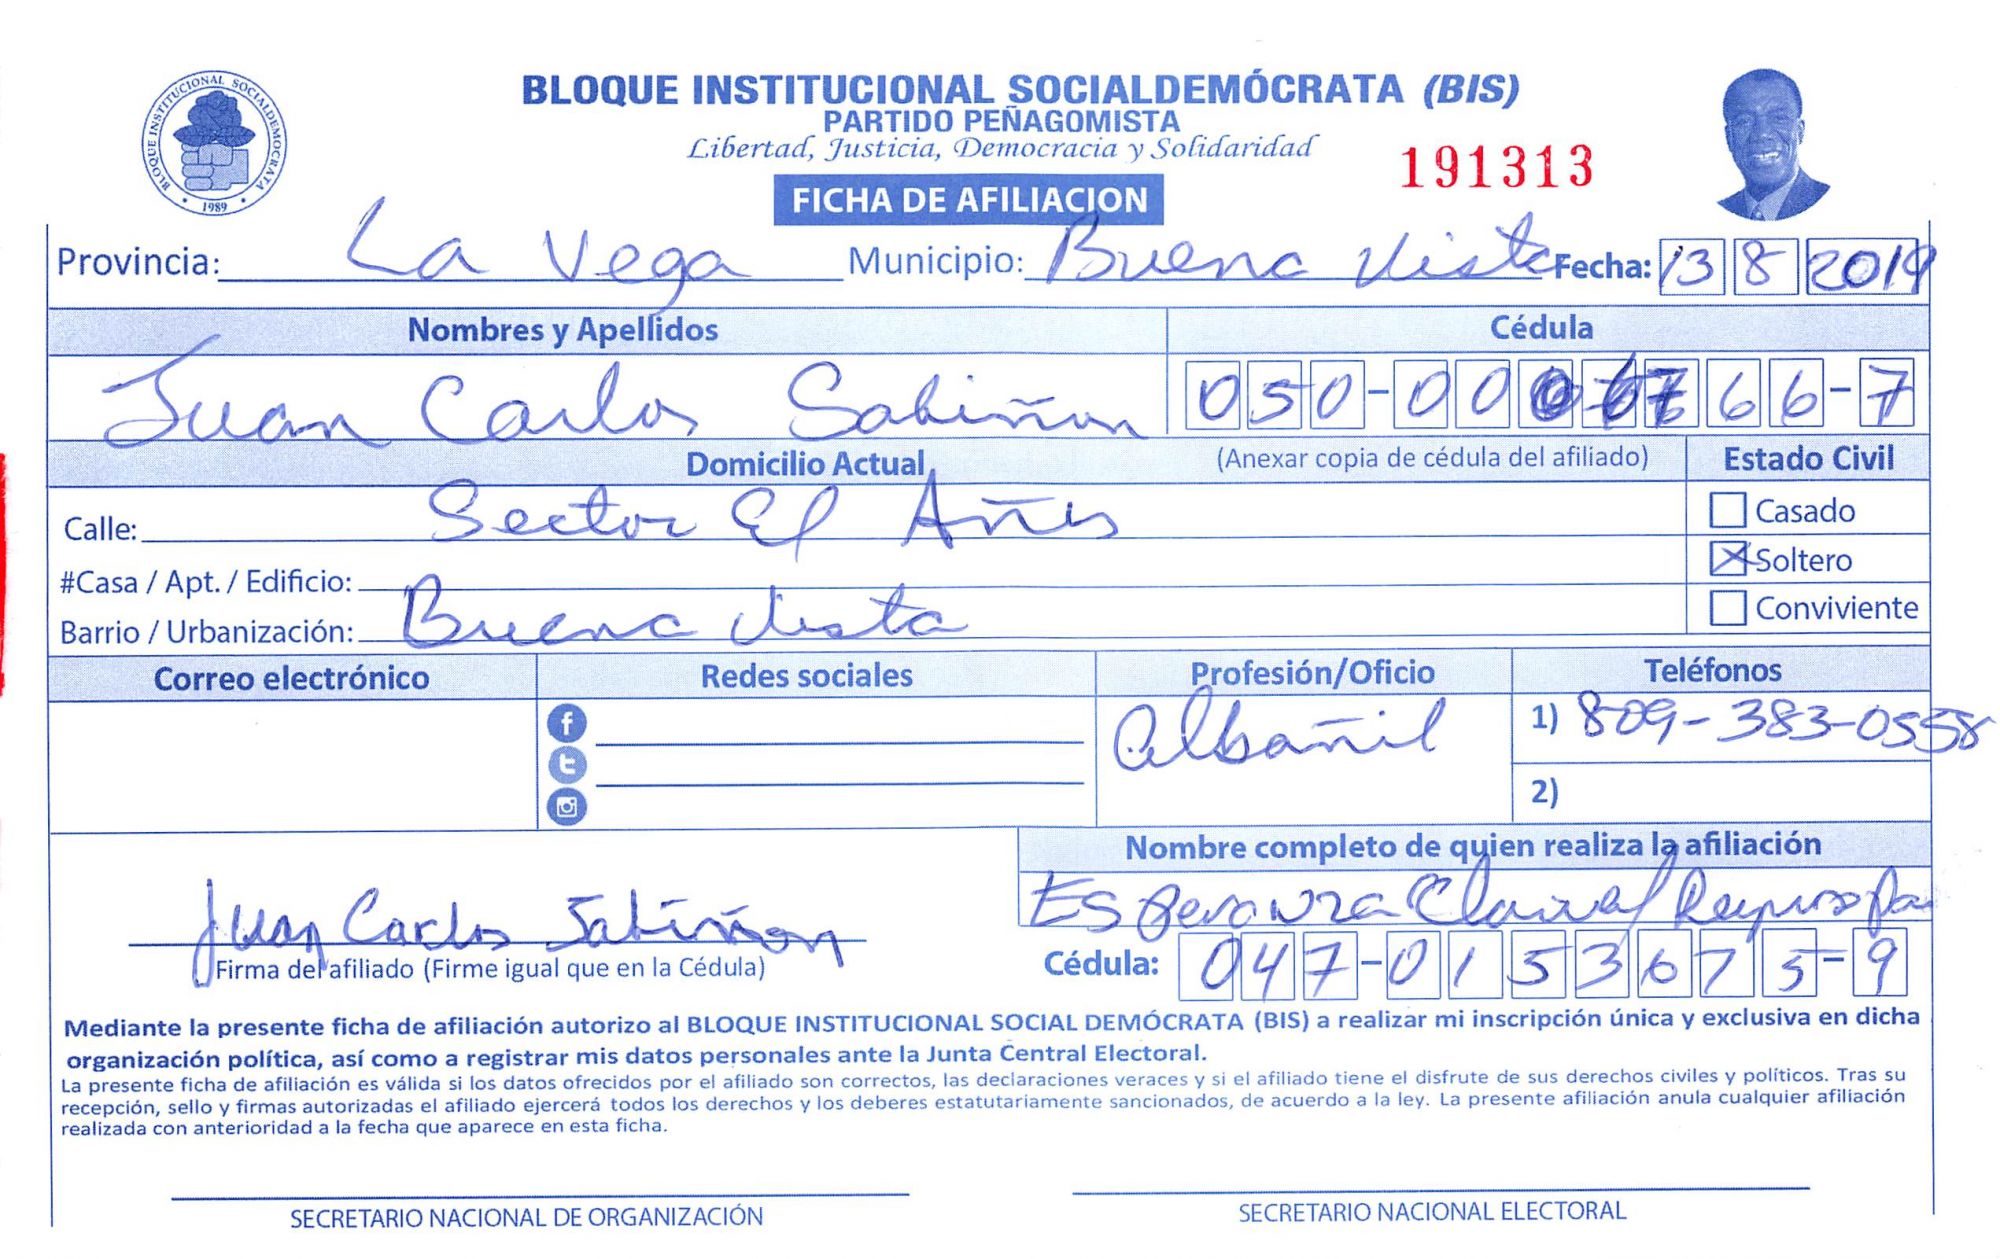 BLOQUE INSTITUCIONAL SOCIALDEMÓCRATA (BIS)
PARTIDO PEÑAGOMISTA
Libertad, Justicia, Democracia y Solidaridad
191313
BLOQUE INSTITUCIONAL SOCIALDEMOCRATA
1989
FICHA DE AFILIACION
Provincia: La Vega Municipio: Buena Vista Fecha: 13 8 2019
Nombres y Apellidos Cédula
Juan Carlos Sabiñon 050-00 66-7
Domicilio Actual (Anexar copia de cédula del afiliado) Estado Civil
Calle: Sector El Casado
#Casa / Apt. / Edificio: Soltero
Barrio / Urbanización: Buena Vista Conviviente
Correo electrónico Redes sociales Profesión/Oficio Teléfonos
Albañil 1) 809-383-0558
2)
Nombre completo de quien realiza la afiliación
Juan Carlos Sabiñon Esperanza
Firma del afiliado (Firme igual que en la Cédula) Cédula: 047-0153675-9
Mediante la presente ficha de afiliación autorizo al BLOQUE INSTITUCIONAL SOCIAL DEMÓCRATA (BIS) a realizar mi inscripción única y exclusiva en dicha
organización política, así como a registrar mis datos personales ante la Junta Central Electoral.
La presente ficha de afiliación es válida si los datos ofrecidos por el afiliado son correctos, las declaraciones veraces y si el afiliado tiene el disfrute de sus derechos civiles y políticos. Tras su
recepción, sello y firmas autorizadas el afiliado ejercerá todos los derechos y los deberes estatutariamente sancionados, de acuerdo a la ley. La presente afiliación anula cualquier afiliación
realizada con anterioridad a la fecha que aparece en esta ficha.
SECRETARIO NACIONAL DE ORGANIZACIÓN SECRETARIO NACIONAL ELECTORAL